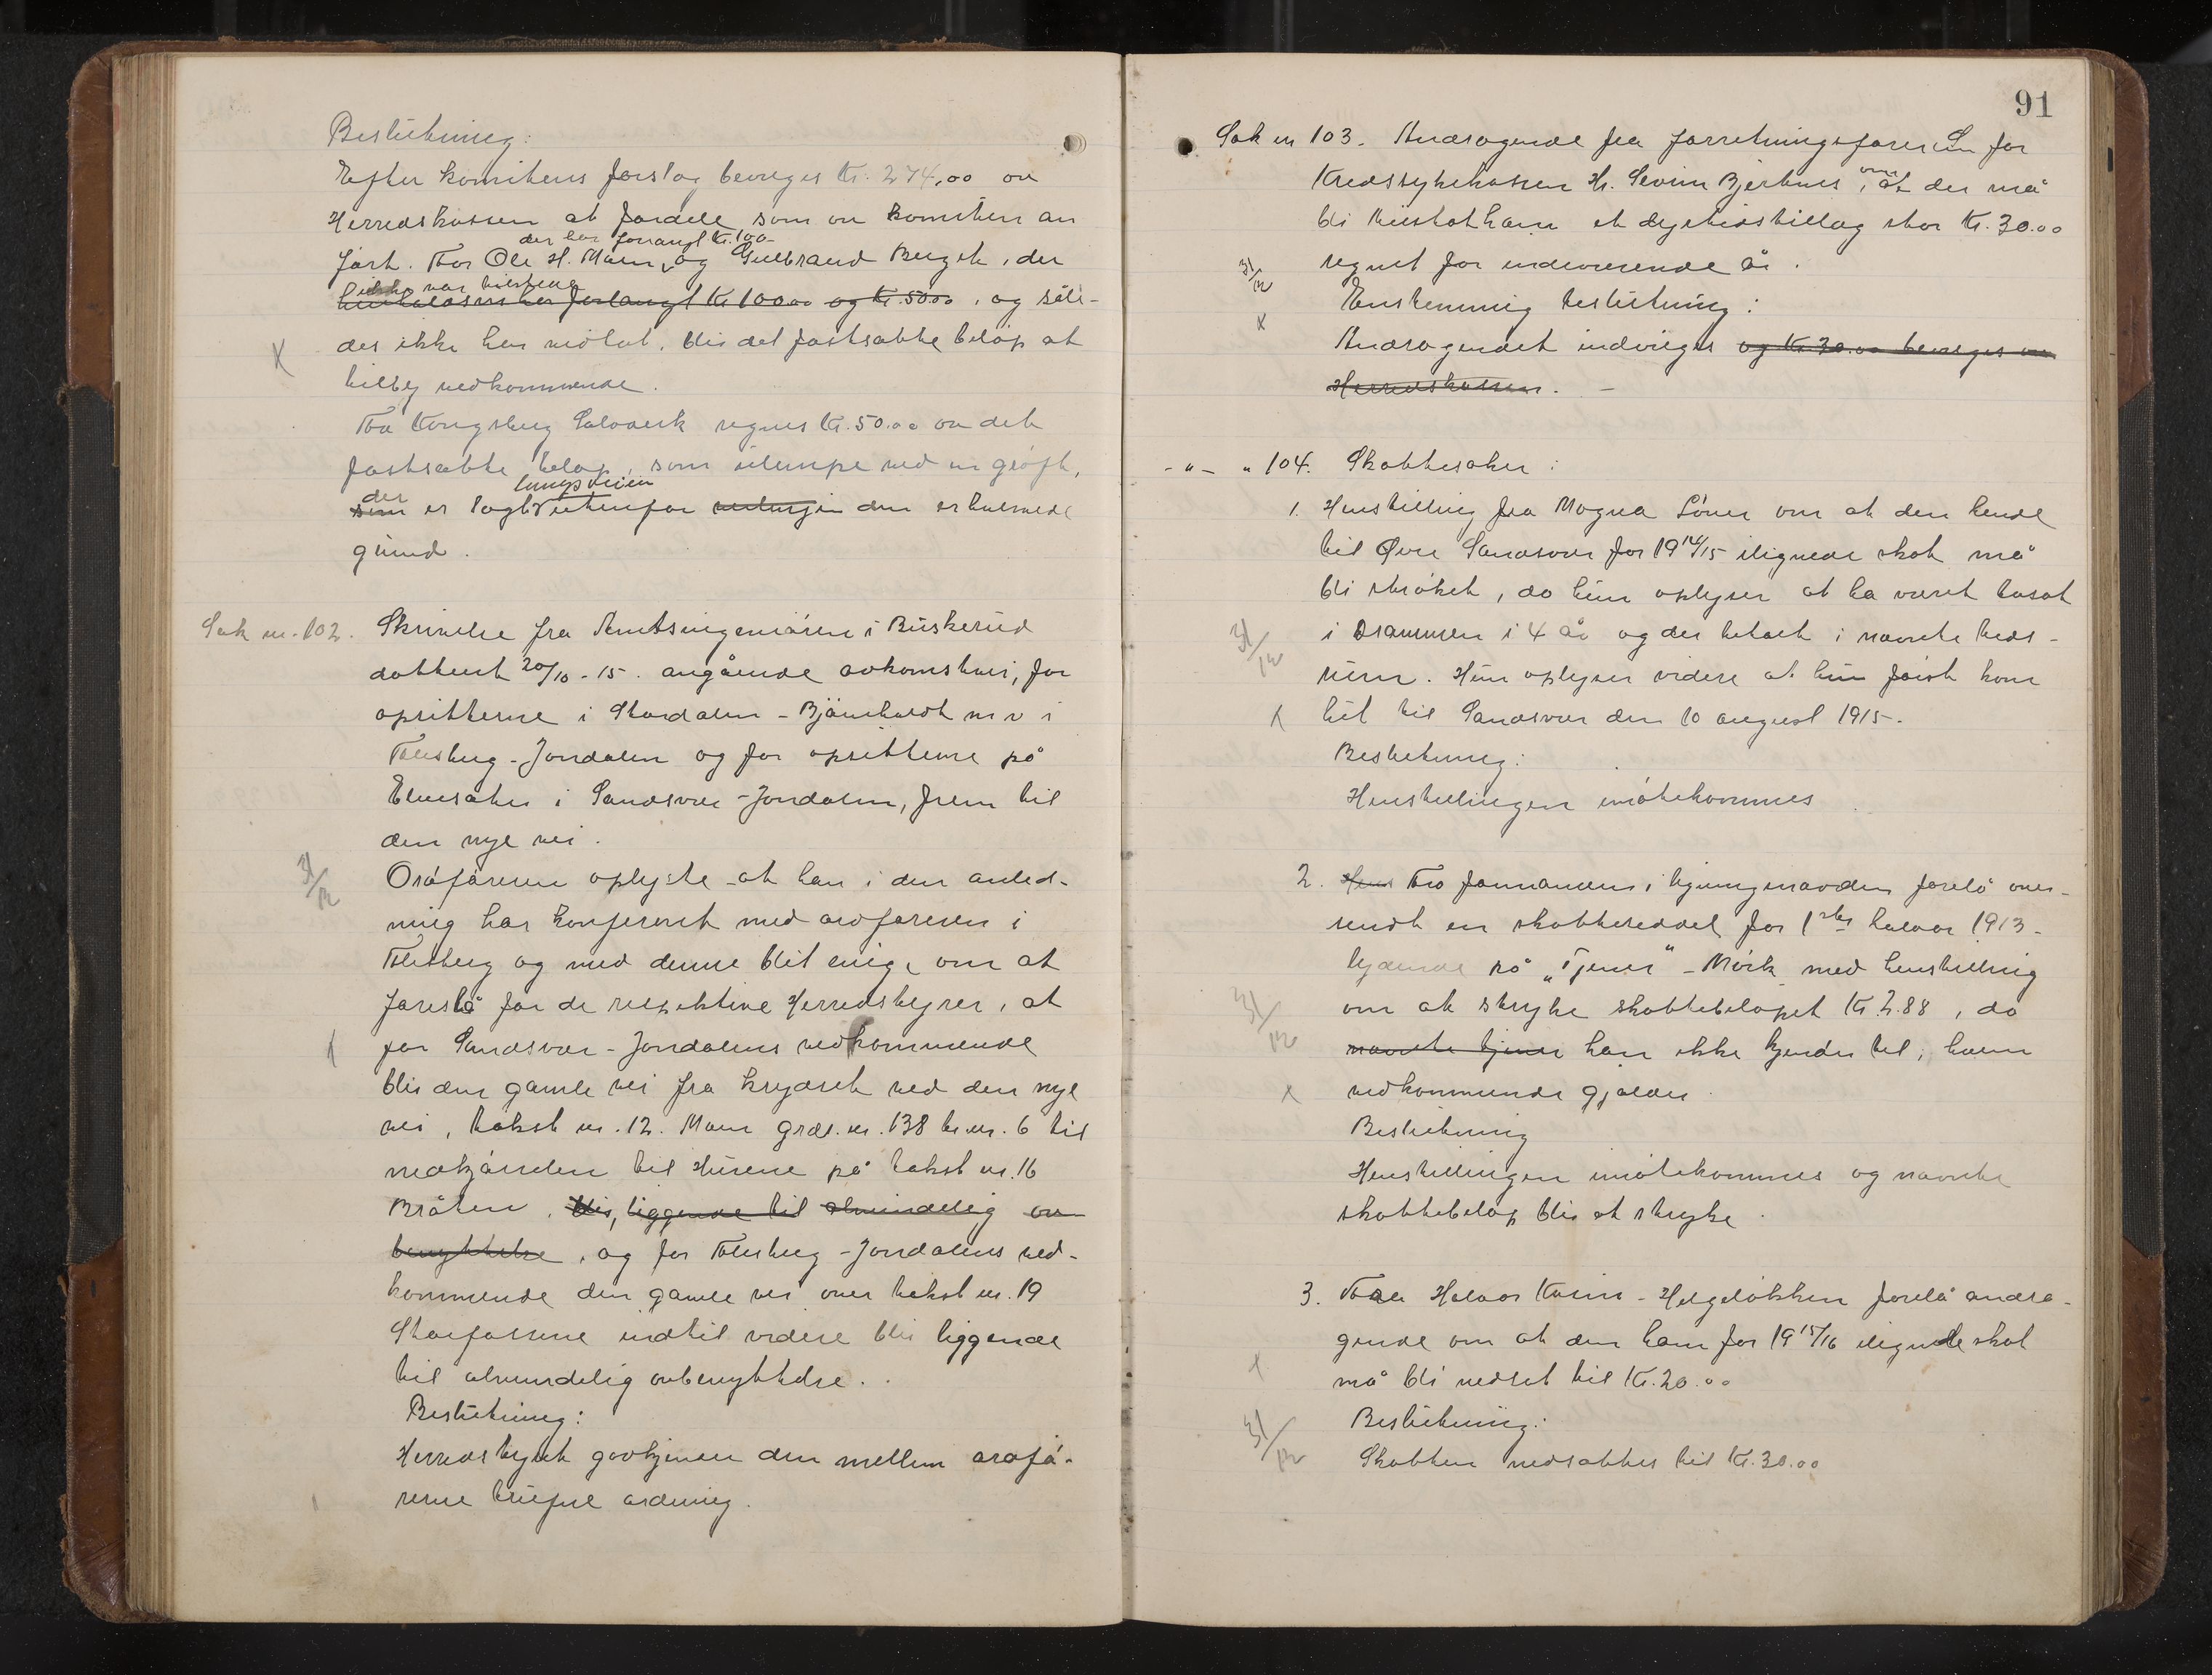 Beslutning:
Efter komitens forslag bevilges Kr. 274,00 av
Herredskassen at fordele som av komiten an
ført. For Ole H. Moen, og Gulbrand Berget, der
der har forlangt Kr. 100-
ikke var tilstede
henholdsvis har forlangt Kr 100.00 og Kr. 50.00, og såle-
des ikke har vedtat, blir det fastsatte beløp at
tilby vedkommende.
Fra Kongsberg Sølvverk regnes Kr. 50.00 av det
fastsatte beløp, som ulempe ved en grøft,
tungsveien
der
som er lagt utenfor den erhvervede
grund.
Sak nr. 102. Skrivelse fra Amtsingeniøren i Buskerud
dattert 20/10-15. angående avkomstvei, for
opsitterne i Stordalen - Bjørnholdt m v i
Flesberg-Jondalen og for opsitterne på
Elvesaker i Sandsvær-Jondalen, frem til
den nye vei.
31/12
Ordføreren oplyste at han i den anled-
ning har konferert med ordføreren i
Flesberg og med denne blit enig, om at
foreslå for de respektive Herredstyrer, at
for Sandsvær-Jondalens vedkommende
blir den gamle vei fra krydset ved den nye
vei, takst nr. 12. Moen grds. nr. 138 br. nr. 6 til
nedkjørselen til Husene på takst nr. 16
Bråten, blir, liggende til almindelig av-
benyttelse, og for Flesberg-Jondalens ved-
kommende den gamle vei over takst nr. 19
Storfossene indtil videre blir liggende
til almindelig avbenyttelse.
Beslutning:
Herredstyret godkjender den mellem ordfø-
rerne trufne ordning.
91
Sak nr 103. Andragende fra forretningsføreren for
Kredssykekassen Hr. Severin Bjerknes, om at der må
bli tilstått ham et dyrtidstillæg stor Kr. 30.00
regnet for indeværende år.
31/12
Enstemmig beslutning:
x
Andragendet indvilges og Kr 30.00 bevilges av
Herredskassen. -
-"- " 104. Skattesaker:
1. Henstilling fra Magna Löver om at den hende
til Øvre Sandsvær for 1914/15 ilignede skat må
bli strøket, da hun oplyser at ha været bosat
i Drammen i 4 år og der betalt i nævnte tids-
31/12
rum. Hun oplyser videre at hun først kom
x
hit til Sandsvær den 10 august 1915.
Beslutning:
Henstillingen imøtekommes
2. Hens Fra formanden i ligningsnævnden forelå over-
sendt en skatteseddel for 1ste halvår 1913.
lydende på "Tjener" - Mørk med henstilling
om at stryke skattebeløpet Kr. 2.88, da
31/12
nævnte tjener han ikke kjender til, hvem
x
vedkommende gjælder.
Beslutning
Henstillingen imøtekommes og nævnte
skattebeløp blir at stryke.
3. Fra Halvor - Helgeløkken forelå andra-
gende om at den ham for 1915/16 ilignede skat
x
må bli nedsat til Kr. 20.00
Beslutning:
31/12
Skatten nedsattes til Kr. 30.00